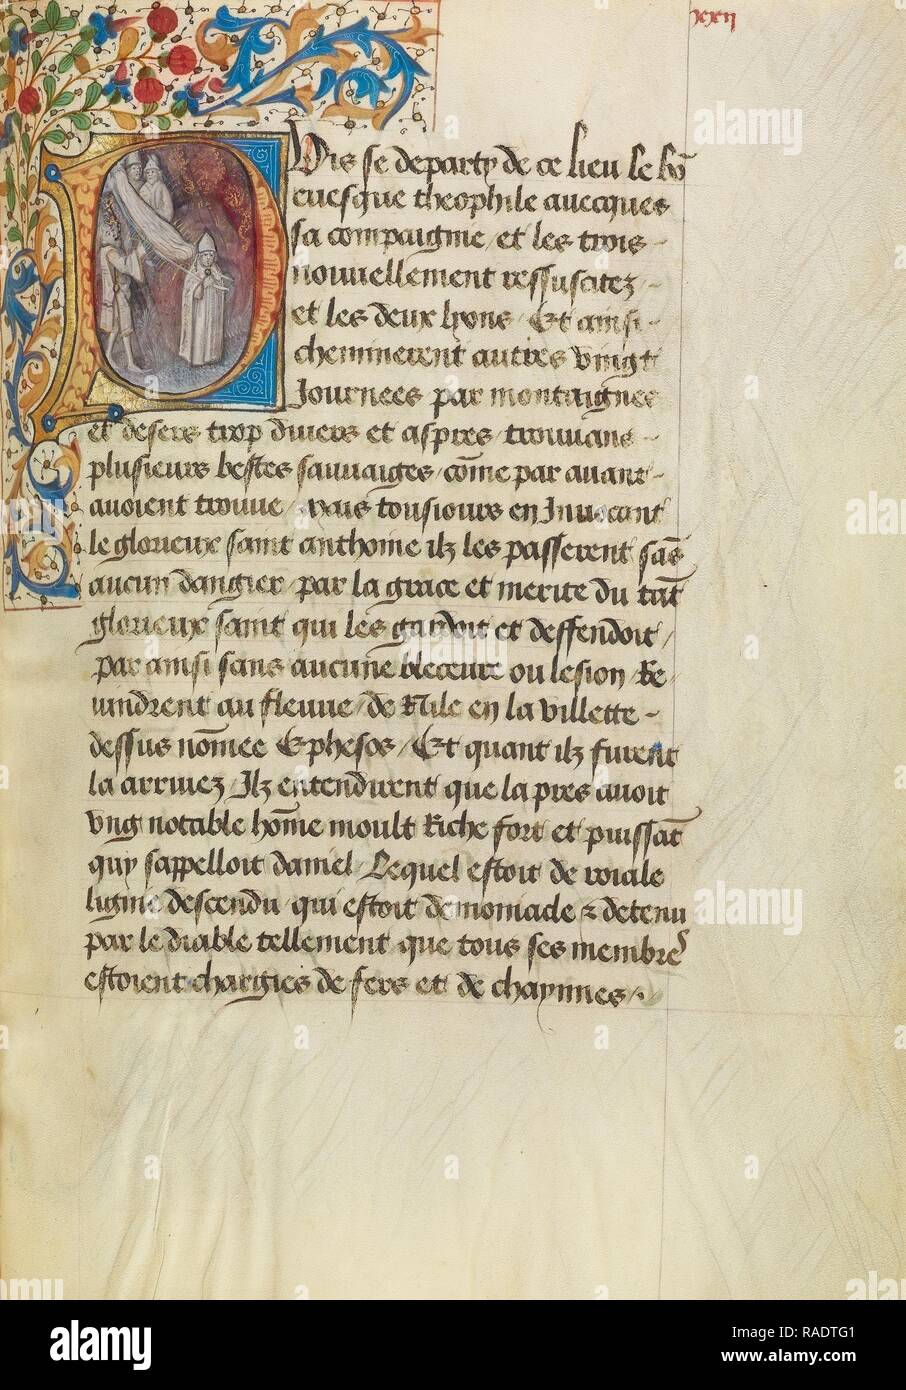 xxij
Puis se departy de ce lieu le bō
euesque theophile auecques
sa compaignie / et les trois
nouuellement ressuscitez /
et les deux lyons / Et ainsi
cheminerent autres vingt
Journees par montaignes
et desers trop diuers et aspres / trouuans
plusieurs bestes sauuaiges / cōme par auant
auoient trouue / mais tousiours en Inuocant
le glorieux saint anthoine ilz les passerent sās
aucun dangier / par la grace et merite du tāt
glorieux saint qui les gardoit et deffendoit /
par ainsi sans aucune bleceure ou lesion / Re
uindrent au fleuue / de Nile en la villette
dessus nōmee Ephesos / Et quant ilz furent
la arriuez / Ilz entendirent que la pres auoit
vng notable hōme moult Riche fort et puissāt
quy sappelloit daniel / Lequel estoit de roiale
lignie descendu / qui estoit demoniacle & detenu
par le diable tellement que tous ses membres
estoient chargies de fers et de chaynnes /.
alamy
alamy stock photo
RADTG1
www.alamy.com